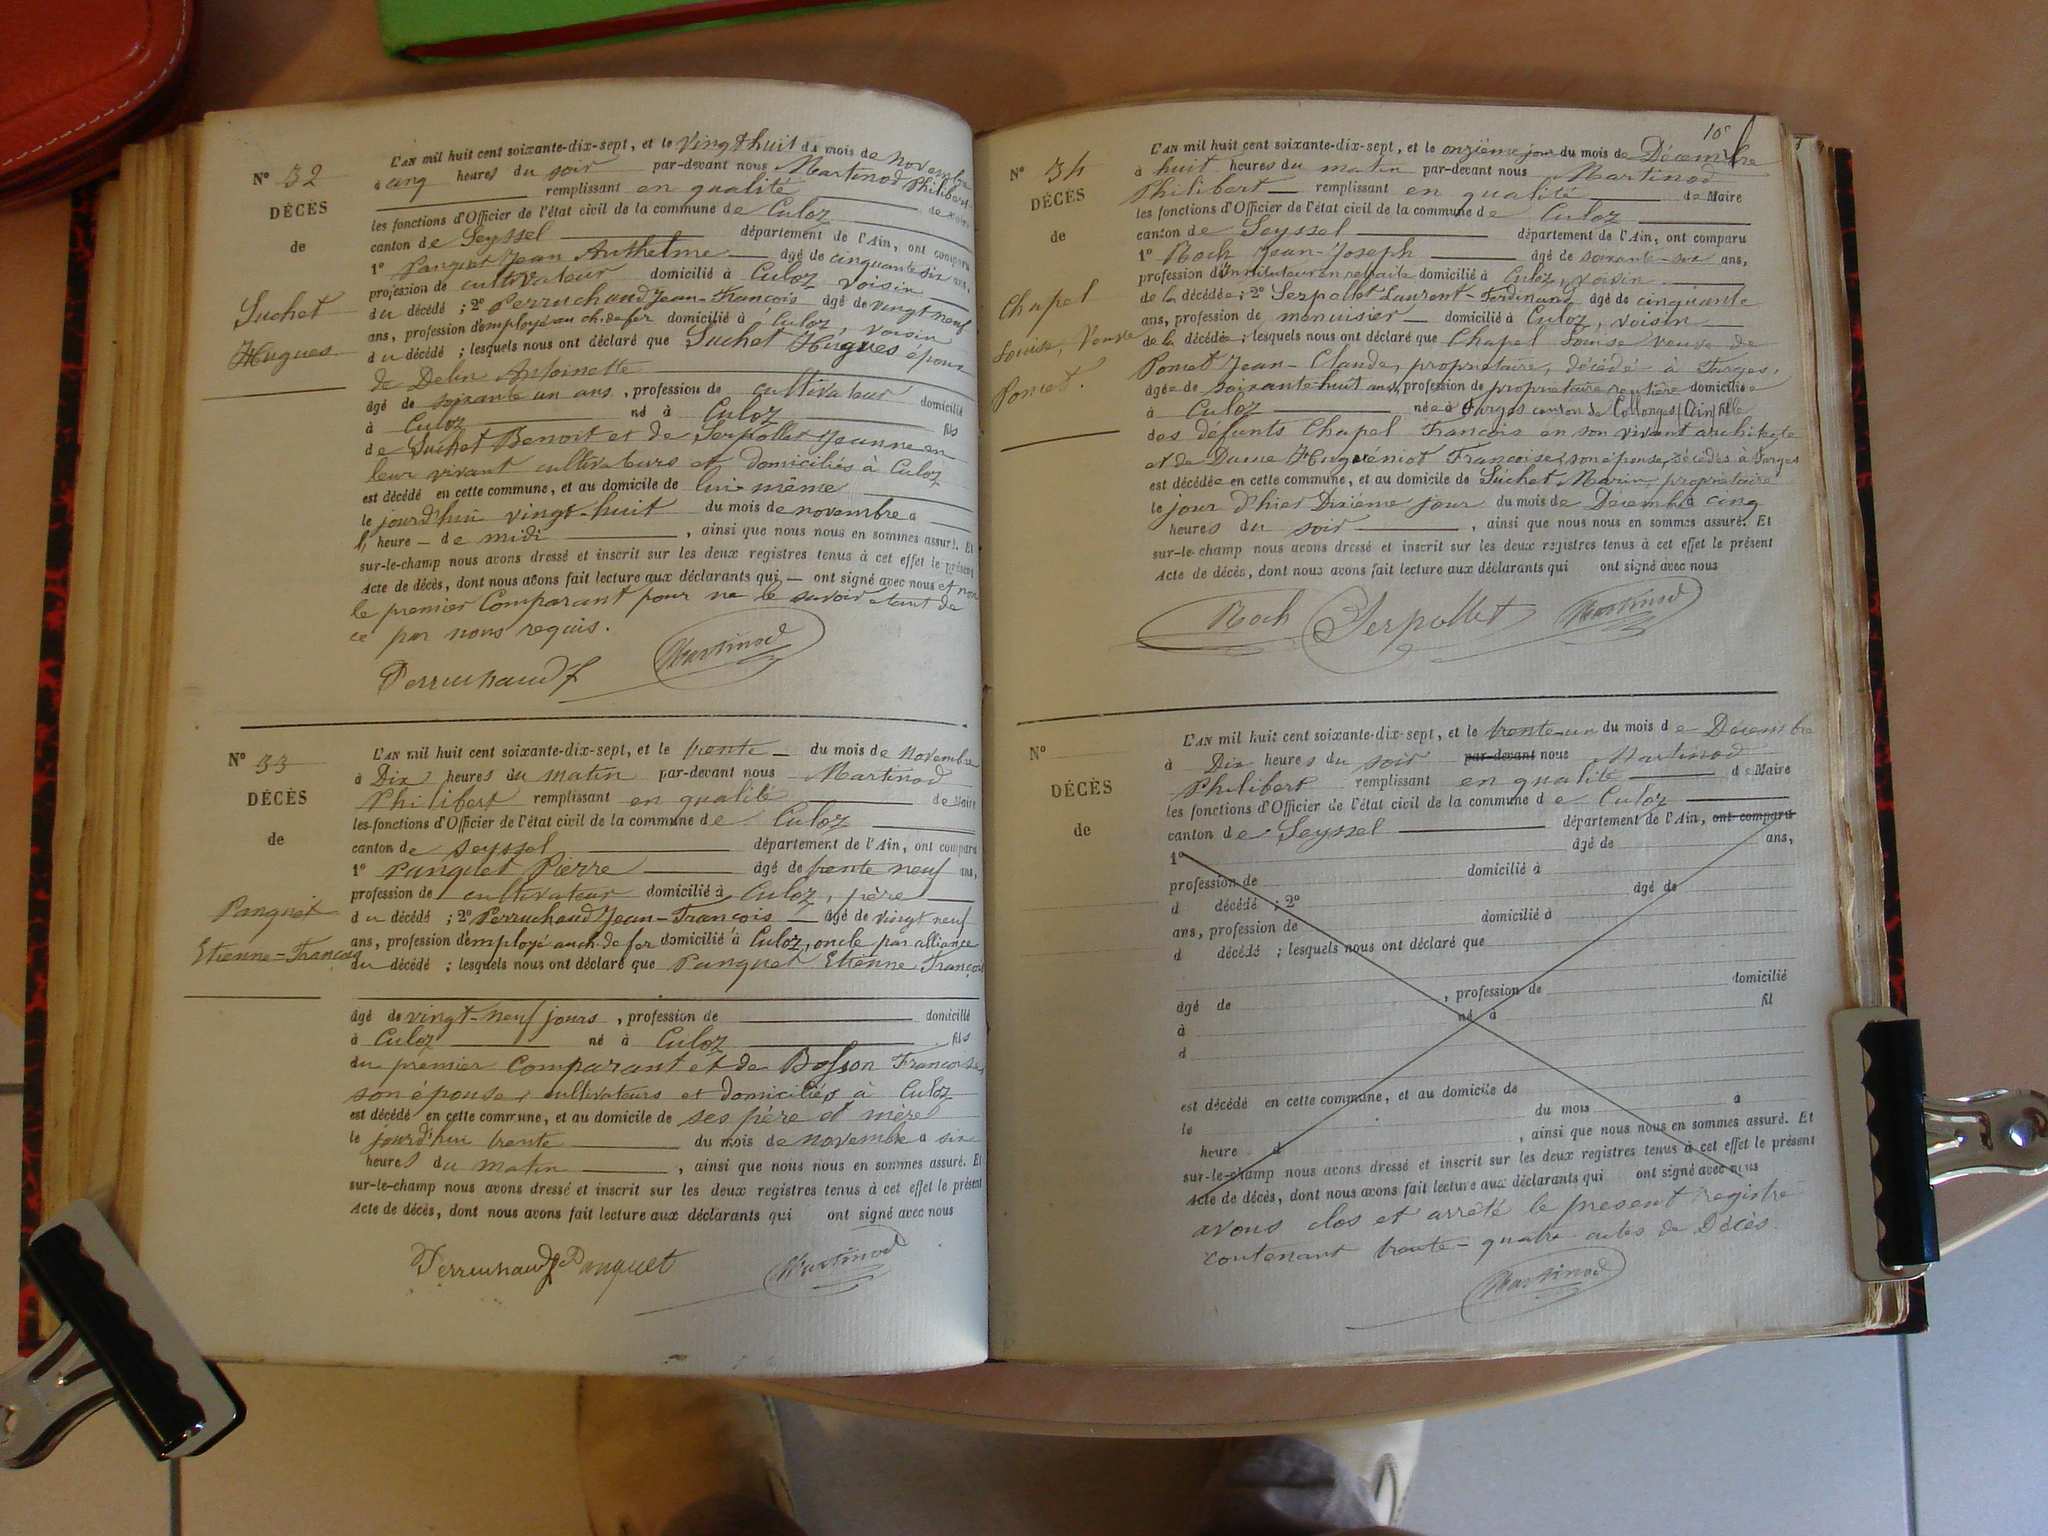 N° 32
DÉCÈS
de
Suchet
Hugues
L'AN mil huit cent soixante-dix-sept, et le Vingt huit du mois de novembre
à cinq heures du soir par-devant nous Martinod Philibert
remplissant en qualité de Maire
les fonctions d'Officier de l'état civil de la commune de Culoz
canton de Seyssel département de l'Ain, ont comparu
1° Panquet Jean Anthelme âgé de cinquante six ans,
profession de cultivateur domicilié à Culoz voisin
du décédé ; 2° Perruchaud Jean-François âgé de vingt neuf
ans, profession d'employé au ch. de fer domicilié à Culoz, voisin
du décédé ; lesquels nous ont déclaré que Suchet Hugues époux
de Delin Antoinette
âgé de soixante un ans, profession de cultivateur domicilié
à Culoz né à Culoz fils
de Suchet Benoit et de Serpollet Jeanne en
leur vivant cultivateurs et domiciliés à Culoz
est décédé en cette commune, et au domicile de lui-même
le jourd'hui vingt-huit du mois de novembre à
1, heure de midi, ainsi que nous nous en sommes assuré. Et
sur-le-champ nous avons dressé et inscrit sur les deux registres tenus à cet effet le présent
Acte de décès, dont nous avons fait lecture aux déclarants qui — ont signé avec nous et non
le premier Comparant pour ne le savoir etant de
ce par nous requis.
Perruchaud f Martinod
N° 33
DÉCÈS
de
Panquet
Etienne-François
L'AN mil huit cent soixante-dix-sept, et le trente du mois de novembre
à Dix heures du matin par-devant nous Martinod
Philibert remplissant en qualité de Maire
les fonctions d'Officier de l'état civil de la commune de Culoz
canton de Seyssel département de l'Ain, ont comparu
1° Panquet Pierre âgé de trente neuf ans,
profession de cultivateur domicilié à Culoz, père
du décédé ; 2° Perruchaud Jean-François âgé de vingt neuf
ans, profession d'employé au ch. de fer domicilié à Culoz, oncle par alliance
du décédé ; lesquels nous ont déclaré que Panquet Etienne François
âgé de vingt-neuf jours, profession de domicilié
à Culoz né à Culoz fils
du premier Comparant et de Bosson Françoise,
son épouse, cultivateurs et domiciliés à Culoz
est décédé en cette commune, et au domicile de ses père et mère
le jourd'hui trente du mois de novembre à six
heures du matin, ainsi que nous nous en sommes assuré. Et
sur-le-champ nous avons dressé et inscrit sur les deux registres tenus à cet effet le présent
Acte de décès, dont nous avons fait lecture aux déclarants qui ont signé avec nous
Perruchaud f Panquet Martinod
10e
N° 34
DÉCÈS
de
Chapel
Louise, Veuve
Pomet.
L'AN mil huit cent soixante-dix-sept, et le onzième jour du mois de Décembre
à huit heures du matin par-devant nous Martinod
Philibert remplissant en qualité de Maire
les fonctions d'Officier de l'état civil de la commune de Culoz
canton de Seyssel département de l'Ain, ont comparu
1° Roch Jean-Joseph âgé de soixante-six ans,
profession d'Instituteur en retraite domicilié à Culoz, voisin
de la décédée ; 2° Serpollet Laurent-Ferdinand âgé de cinquante
ans, profession de menuisier domicilié à Culoz, voisin
de la décédée ; lesquels nous ont déclaré que Chapel Louise veuve de
Pomet Jean-Claude, propriétaire, décédé à Farges,
âgée de soixante-huit ans, profession de propriétaire rentière domiciliée
à Culoz née à Farges canton de Collonges (Ain) fille
des défunts Chapel François en son vivant architecte
et de Dame Huguéniot Françoise, son épouse, décédés à Farges
est décédée en cette commune, et au domicile de Suchet Marin propriétaire
le jour d'hier Dixième jour du mois de Décembre à cinq
heures du soir, ainsi que nous nous en sommes assuré. Et
sur-le-champ nous avons dressé et inscrit sur les deux registres tenus à cet effet le présent
Acte de décès, dont nous avons fait lecture aux déclarants qui ont signé avec nous
Roch Serpollet Martinod
N°
DÉCÈS
de
L'AN mil huit cent soixante-dix-sept, et le trente-un du mois de Décembre
à Dix heures du soir par-devant nous Martinod
Philibert remplissant en qualité de Maire
les fonctions d'Officier de l'état civil de la commune de Culoz
canton de Seyssel département de l'Ain, ont comparu
1° âgé de ans,
profession de domicilié à
d décédé ; 2° âgé de
ans, profession de domicilié à
d décédé ; lesquels nous ont déclaré que
âgé de , profession de domicilié
à né à fil
d
est décédé en cette commune, et au domicile de
le du mois à
heure d , ainsi que nous nous en sommes assuré. Et
sur-le-champ nous avons dressé et inscrit sur les deux registres tenus à cet effet le présent
Acte de décès, dont nous avons fait lecture aux déclarants qui ont signé avec nous
avons clos et arrêté le present registre
contenant trente-quatre actes de Décès.
Martinod